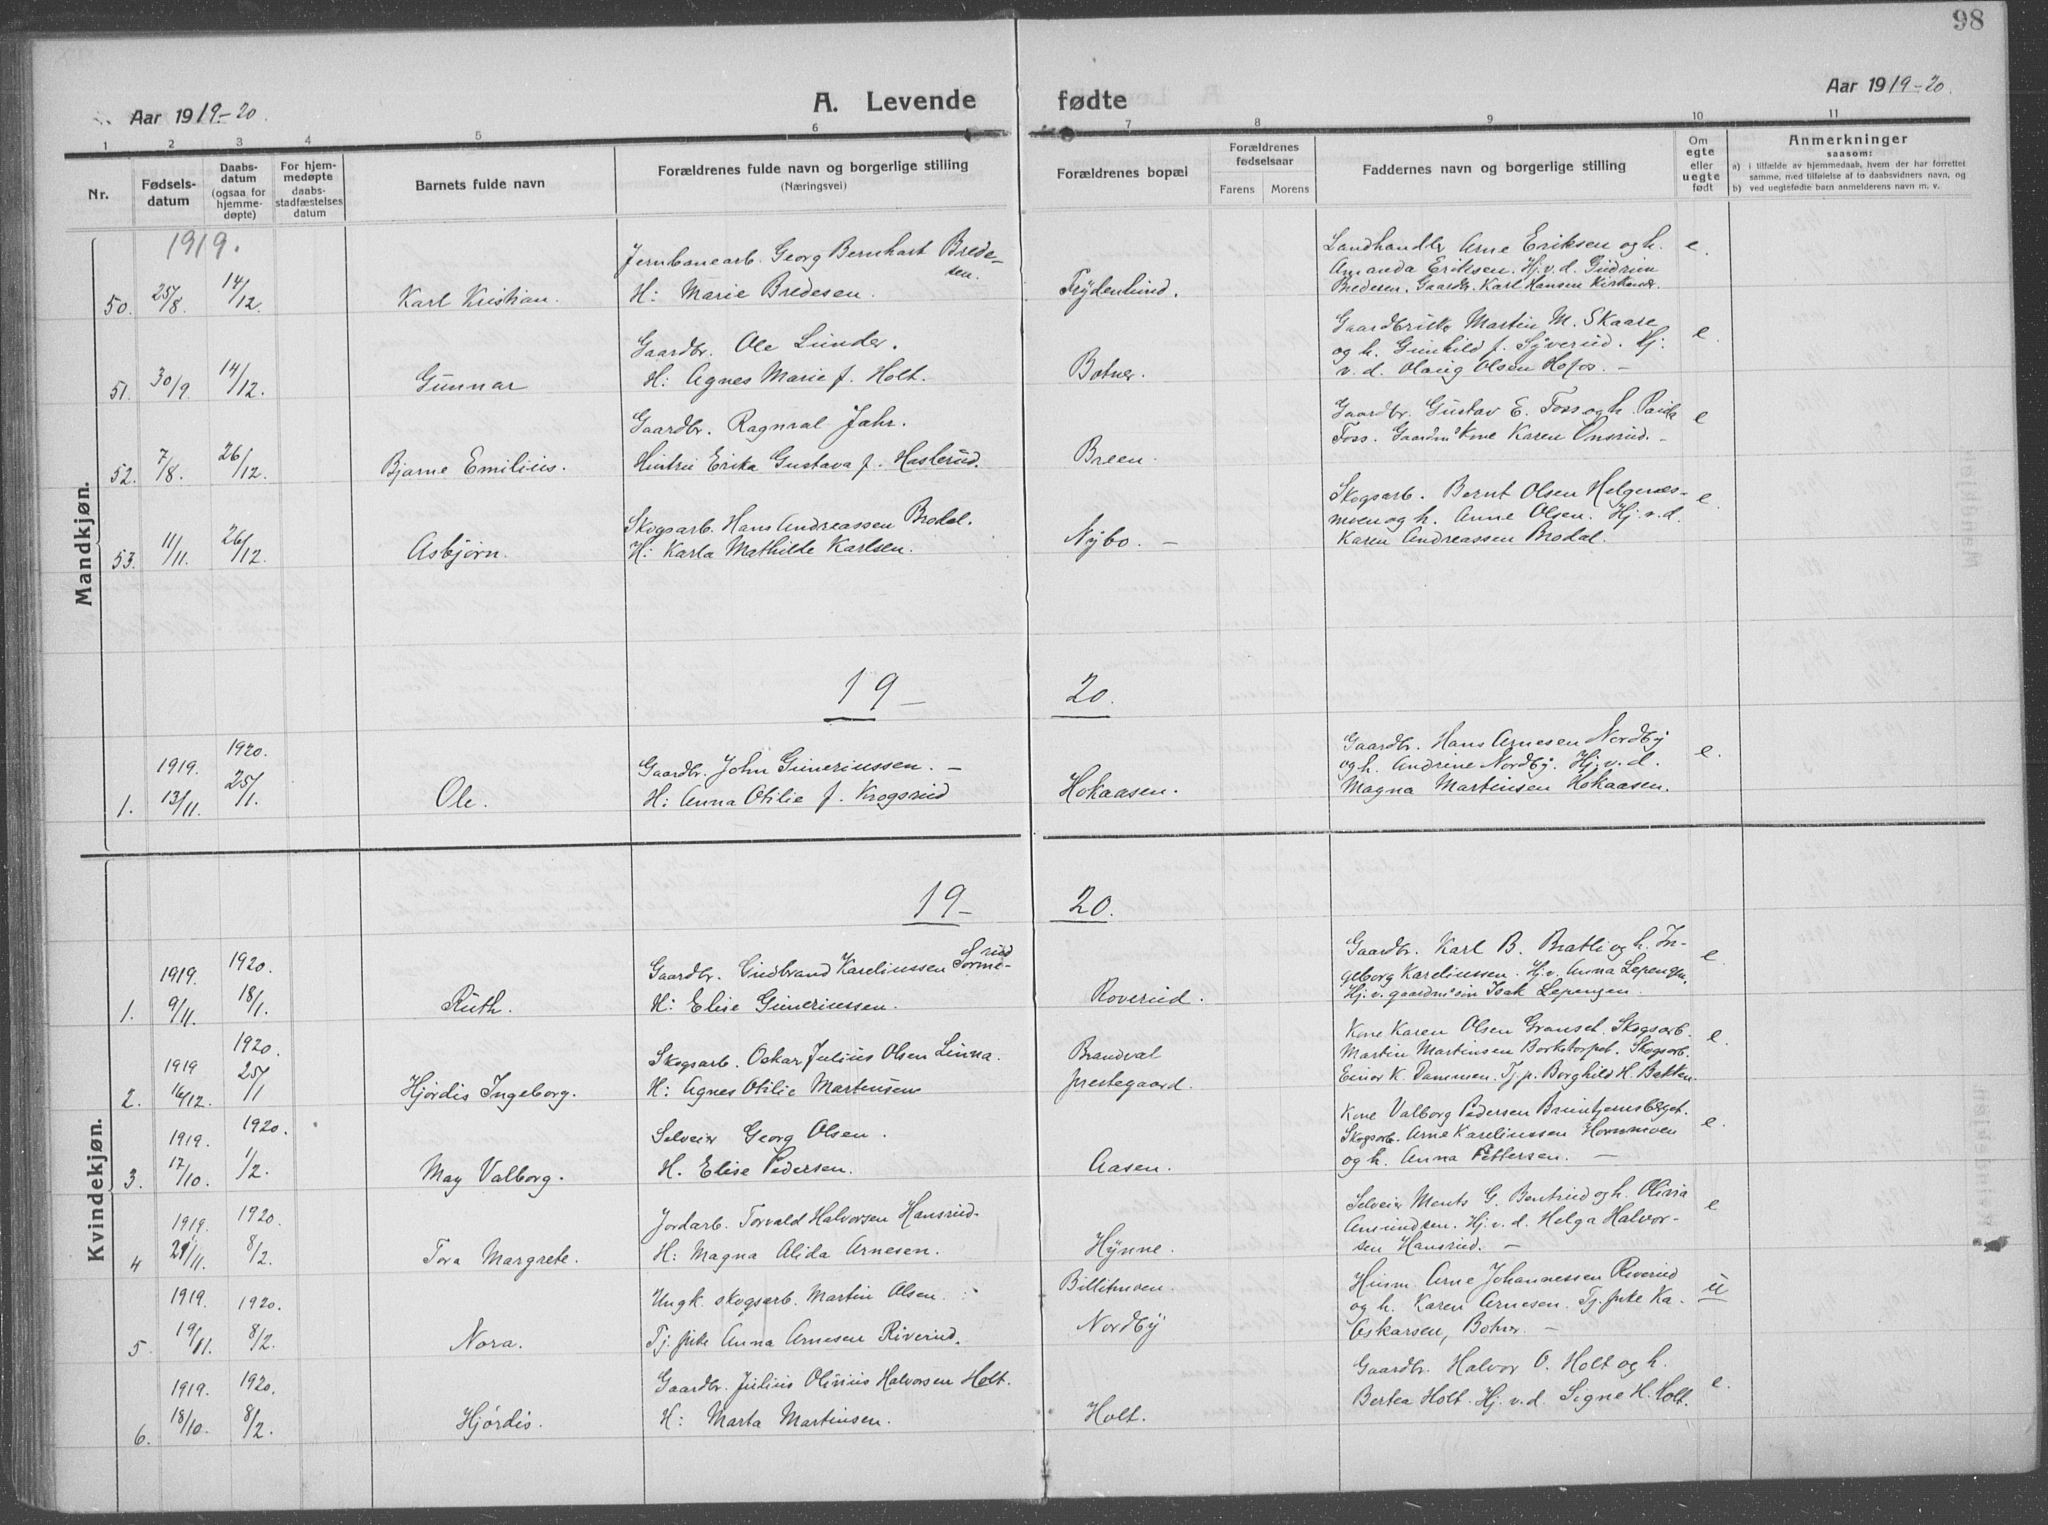 98
Aar 1919-20.
A. Levende fødte
Aar 1919-20.
1 2 3 4 5 6 7 8 9 10 11
Nr.
Fødsels-
datum
Daabs-
datum
(ogsaa for
hjemme-
døpte)
For hjem-
medøpte
daabs-
stadfæstelses
datum
Barnets fulde navn
Forældrenes fulde navn og borgerlige stilling
(Næringsvei)
Forældrenes bopæl
Forældrenes
fødselsaar
Farens Morens
Faddernes navn og borgerlige stilling
Om
egte
eller
uegte
født
Anmerkninger
saasom:
a) i tilfælde av hjemmedaab, hvem der har forrettet
samme, med tilføielse af to daabsvidners navn, og
b) ved uegtefødte barn anmelderens navn m. v.
Mandkjøn.
1919.
50. 25/8. 14/12. Karl Kristian.
Jernbanearb. Georg Bernhart Brede-
sen.
H: Marie Bredesen.
Frydenlund.
Landhandler Arne Eriksen og h.
Amanda Eriksen. Hj. v. d. Gudrun
Bredesen. Gaardbr. Karl Hansen
e.
51. 30/9. 14/12. Gunnar
Gaardbr. Ole Lunder.
H: Agnes Marie f. Holt.
Botner.
Martin M. Skaare
og h. Gunhild f. Syverud. Hj.
v. d. Olaug Olsen Hofos. –
e.
52. 7/8. 26/12. Bjarne Emilius.
Gaardbr. Ragnval Jahr.
Hustru Erika Gustava f. Haslerud.
Breen.
Gaardbr. Gustav E. Foss og h.
Foss. Gaardm's kone Karen Onsrud. –
e
53. 11/11. 26/12. Asbjørn.
Skogsarb. Hans Andreassen Brodal.
H: Karla Mathilde Karlsen.
Nybo. –
Skogsarb. Bernt Olsen Helgenæs-
moen og h. Anne Olsen. Hj. v. d.
Karen Andreassen Brodal.
e.
19 – 20.
1919. 1920.
1. 13/11. 25/1. Ole.
Gaardbr. John Guneriussen. –
H: Anna Otilie f. Krogsrud
Hokaasen.
Gaardbr. Hans Arnesen Nordby
og h. Andrine Nordby. Hj. v. d.
Magna Martinsen Hokaasen.
e.
Kvindekjøn.
19 – 20.
1919. 1920.
1. 9/11. 18/1. Ruth.
Gaardbr. Gudbrand Kareliussen Sorme-
rud
H: Elise Guneriussen.
Roverud.
Gaardbr. Karl B. Bratli og h. In-
geborg Kareliussen. Hj. v. Anna Lepengen,
Hj. v. gaardm's søn Isak Lepengen.
e.
1919 1920.
2. 16/12. 25/11 Hjørdis Ingeborg.
Skogsarb. Oskar Julius Olsen Linna.
H: Agnes Otilie Martinsen
Brandval
prestegaard.
Kone Karen Olsen Granset. Skogsarb.
Martin Martinsen Borketorpet. Skogsarb.
Einar K. Dammen. Tj. p. Borghild H. Bakken.
e.
1919. 1920.
3. 17/10. 1/2. May Valborg.
Selveier Georg Olsen.
H. Elise Pedersen.
Aasen.
Kone Valborg Pedersen Bruntjernsberget.
Skogsarb. Arne Kareliussen Hornmoen
og h. Anna Pettersen. –
e.
1919. 1920.
4 29/11. 8/2. Tora Margrete.
Jordarb. Torvald Halvorsen Hansrud.
H: Magna Alida Arnesen.
Hynne.
Selveier Ments G. Bentrud og h. Olivia
Amundsen. Hj. v. d. Helga Halvor-
sen Hansrud. –
e
1919. 1920.
5. 19/11. 8/2. Nora.
Ungk. skogsarb. Martin Olsen.
Tj. pike Anna Arnesen Riverud.
Billitmoen.
Nordby
Husm. Arne Johannessen Riverud
og h. Karen Arnesen. Tj. pike Ka.
Askarsen, –
u
1919. 1920.
6. 18/10. 8/2. Hjørdis.
Gaardbr. Julius Olinius Halvorsen Holt.
H: Marta Martinsen.
Holt.
Gaardbr. Halvor O. Holt og h.
Bertea Holt. Hj. v. d. Signe H. Holt.
e.